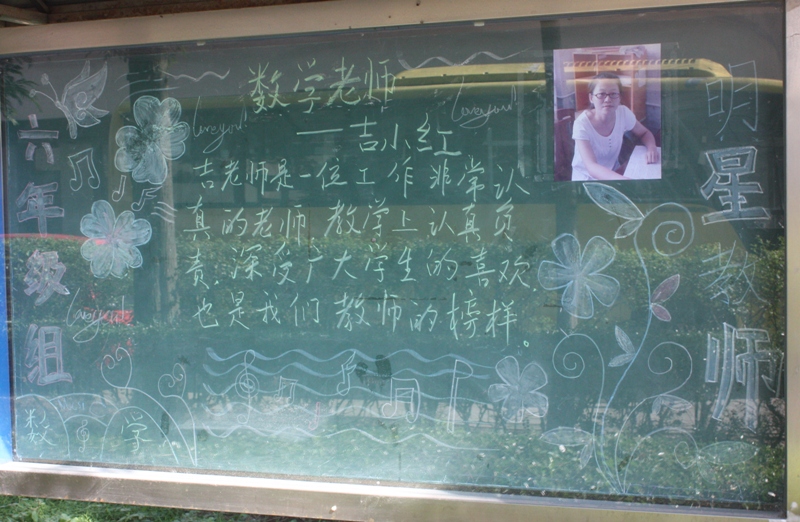 六年级组
数学老师
——吉小红
吉老师是一位工作非常认
真的老师 教学上认真负
责,深受广大学生的喜欢,
也是我们教师的榜样。
明星教师
loveyou!
loveyou!
loveyou!
数学